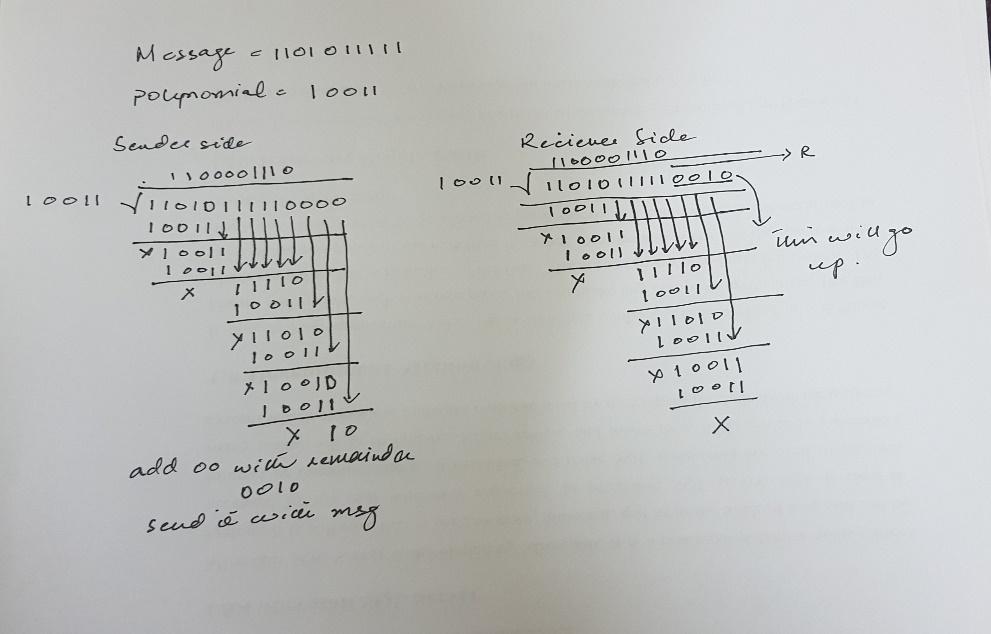 Message = 1101011111
polynomial = 10011
Sender side
1100001110
10011 √11010111110000
10011
x10011
10011
x 11110
10011
x11010
10011
x10010
10011
x 10
add 00 with remainder
0010
send it with msg
Reciever Side
1100001110 → R
10011 √11010111110010
10011
x10011
10011
x 11110
10011
x11010
10011
x10011
10011
x
This will go
up.